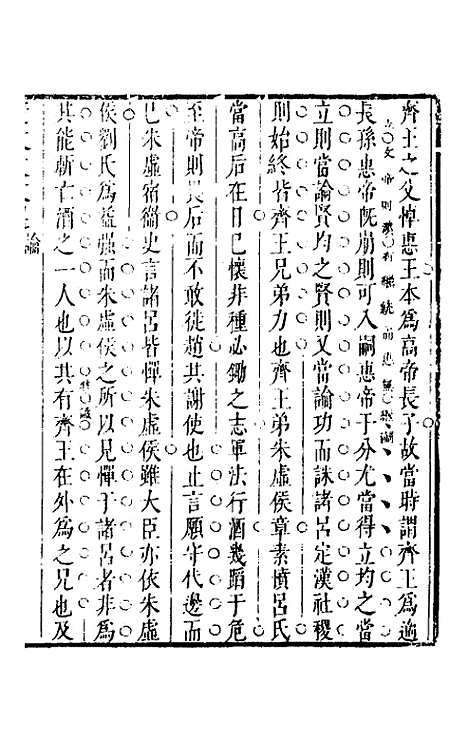 齊王之父悼惠王本爲高帝長子故當時謂齊王爲適
長孫惠帝旣崩則可入嗣惠帝于分尤當得立均之當
立則當論賢均之賢則又當論功而誅諸呂定漢社稷
則始終皆齊王兄弟力也齊王弟朱虛侯章素憤呂氏
當高后在日已懷非種必鋤之志軍法行酒幾蹈于危
至帝則畏后而不敢徙趙共謝使也止言願守代邊而
已朱虛宿衞史言諸呂皆憚朱虛侯雖大臣亦依朱虛
侯劉氏爲益強而朱虛侯之所以見憚于諸呂者非爲
其能斬亡酒之一人也以其有齊王在外爲之兄也及
論